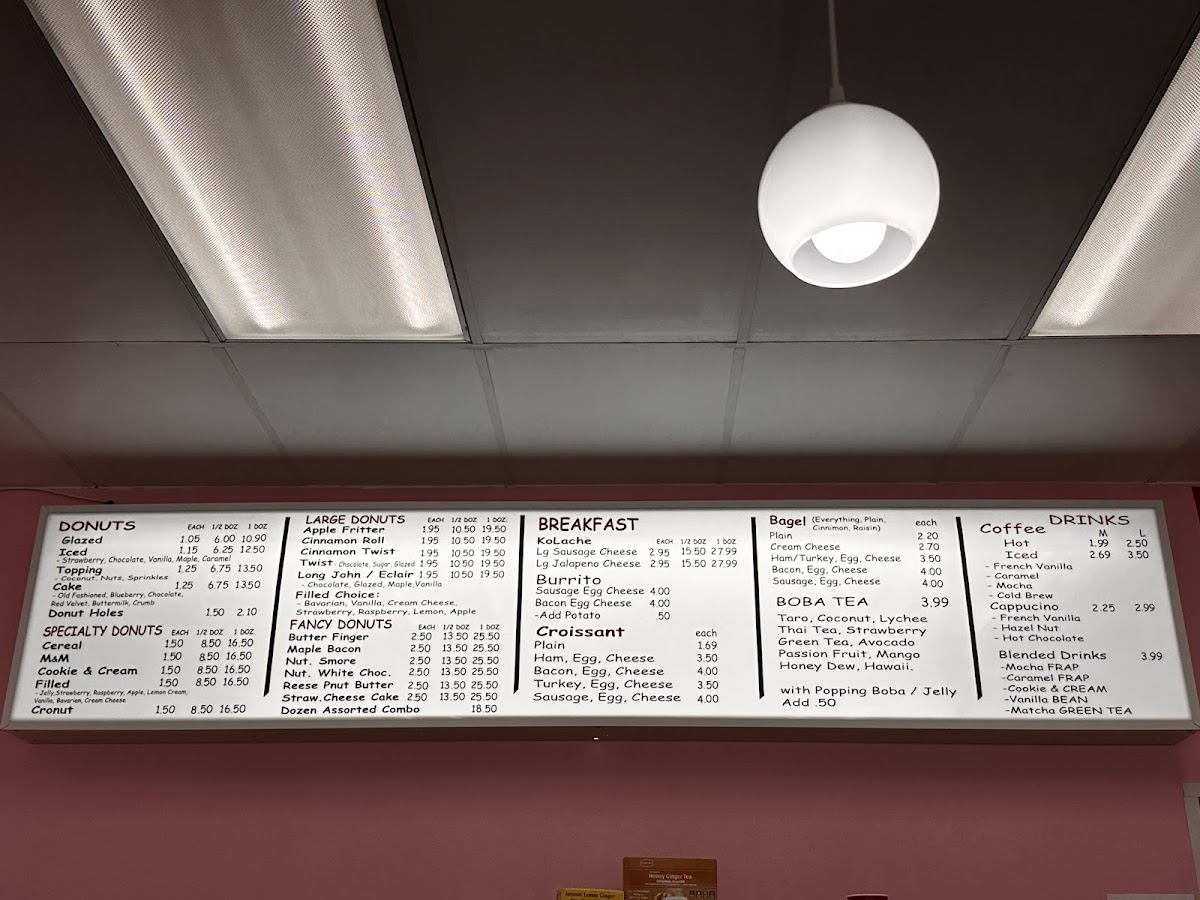 DONUTS EACH 1/2 DOZ 1 DOZ
Glazed 1.05 6.00 10.90
Iced 1.15 6.25 12.50
- Strawberry, Chocolate, Vanilla, Maple, Caramel
Topping 1.25 6.75 13.50
- Coconut, Nuts, Sprinkles
Cake 1.25 6.75 13.50
- Old Fashioned, Blueberry, Chocolate,
Red Velvet, Buttermilk, Crumb
Donut Holes 1.50 2.10
SPECIALTY DONUTS EACH 1/2 DOZ 1 DOZ.
Cereal 1.50 8.50 16.50
M&M 1.50 8.50 16.50
Cookie & Cream 1.50 8.50 16.50
Filled 1.50 8.50 16.50
- Jelly,Strawberry, Raspberry, Apple, Lemon Cream,
Vanilla, Bavarian, Cream Cheese
Cronut 1.50 8.50 16.50
LARGE DONUTS EACH 1/2 DOZ 1 DOZ.
Apple Fritter 1.95 10.50 19.50
Cinnamon Roll 1.95 10.50 19.50
Cinnamon Twist 1.95 10.50 19.50
Twist - Chocolate, Sugar, Glazed 1.95 10.50 19.50
Long John / Eclair 1.95 10.50 19.50
- Chocolate, Glazed, Maple,Vanilla
Filled Choice:
- Bavarian, Vanilla, Cream Cheese,
Strawberry, Raspberry, Lemon, Apple
FANCY DONUTS EACH 1/2 DOZ 1 DOZ.
Butter Finger 2.50 13.50 25.50
Maple Bacon 2.50 13.50 25.50
Nut. Smore 2.50 13.50 25.50
Nut. White Choc. 2.50 13.50 25.50
Reese Pnut Butter 2.50 13.50 25.50
Straw.Cheese Cake 2.50 13.50 25.50
Dozen Assorted Combo 18.50
BREAKFAST
KoLache EACH 1/2 DOZ 1 DOZ.
Lg Sausage Cheese 2.95 15.50 27.99
Lg Jalapeno Cheese 2.95 15.50 27.99
Burrito
Sausage Egg Cheese 4.00
Bacon Egg Cheese 4.00
-Add Potato .50
Croissant each
Plain 1.69
Ham, Egg, Cheese 3.50
Bacon, Egg, Cheese 4.00
Turkey, Egg, Cheese 3.50
Sausage, Egg, Cheese 4.00
Bagel (Everything, Plain, each
Cinnimon, Raisin)
Plain 2.20
Cream Cheese 2.70
Ham/Turkey, Egg, Cheese 3.50
Bacon, Egg, Cheese 4.00
Sausage, Egg, Cheese 4.00
BOBA TEA 3.99
Taro, Coconut, Lychee
Thai Tea, Strawberry
Green Tea, Avocado
Passion Fruit, Mango
Honey Dew, Hawaii.
with Popping Boba / Jelly
Add .50
DRINKS
Coffee M L
Hot 1.99 2.50
Iced 2.69 3.50
- French Vanilla
- Caramel
- Mocha
- Cold Brew
Cappucino 2.25 2.99
- French Vanilla
- Hazel Nut
- Hot Chocolate
Blended Drinks 3.99
-Mocha FRAP
-Caramel FRAP
-Cookie & CREAM
-Vanilla BEAN
-Matcha GREEN TEA
Honey Ginger Tea